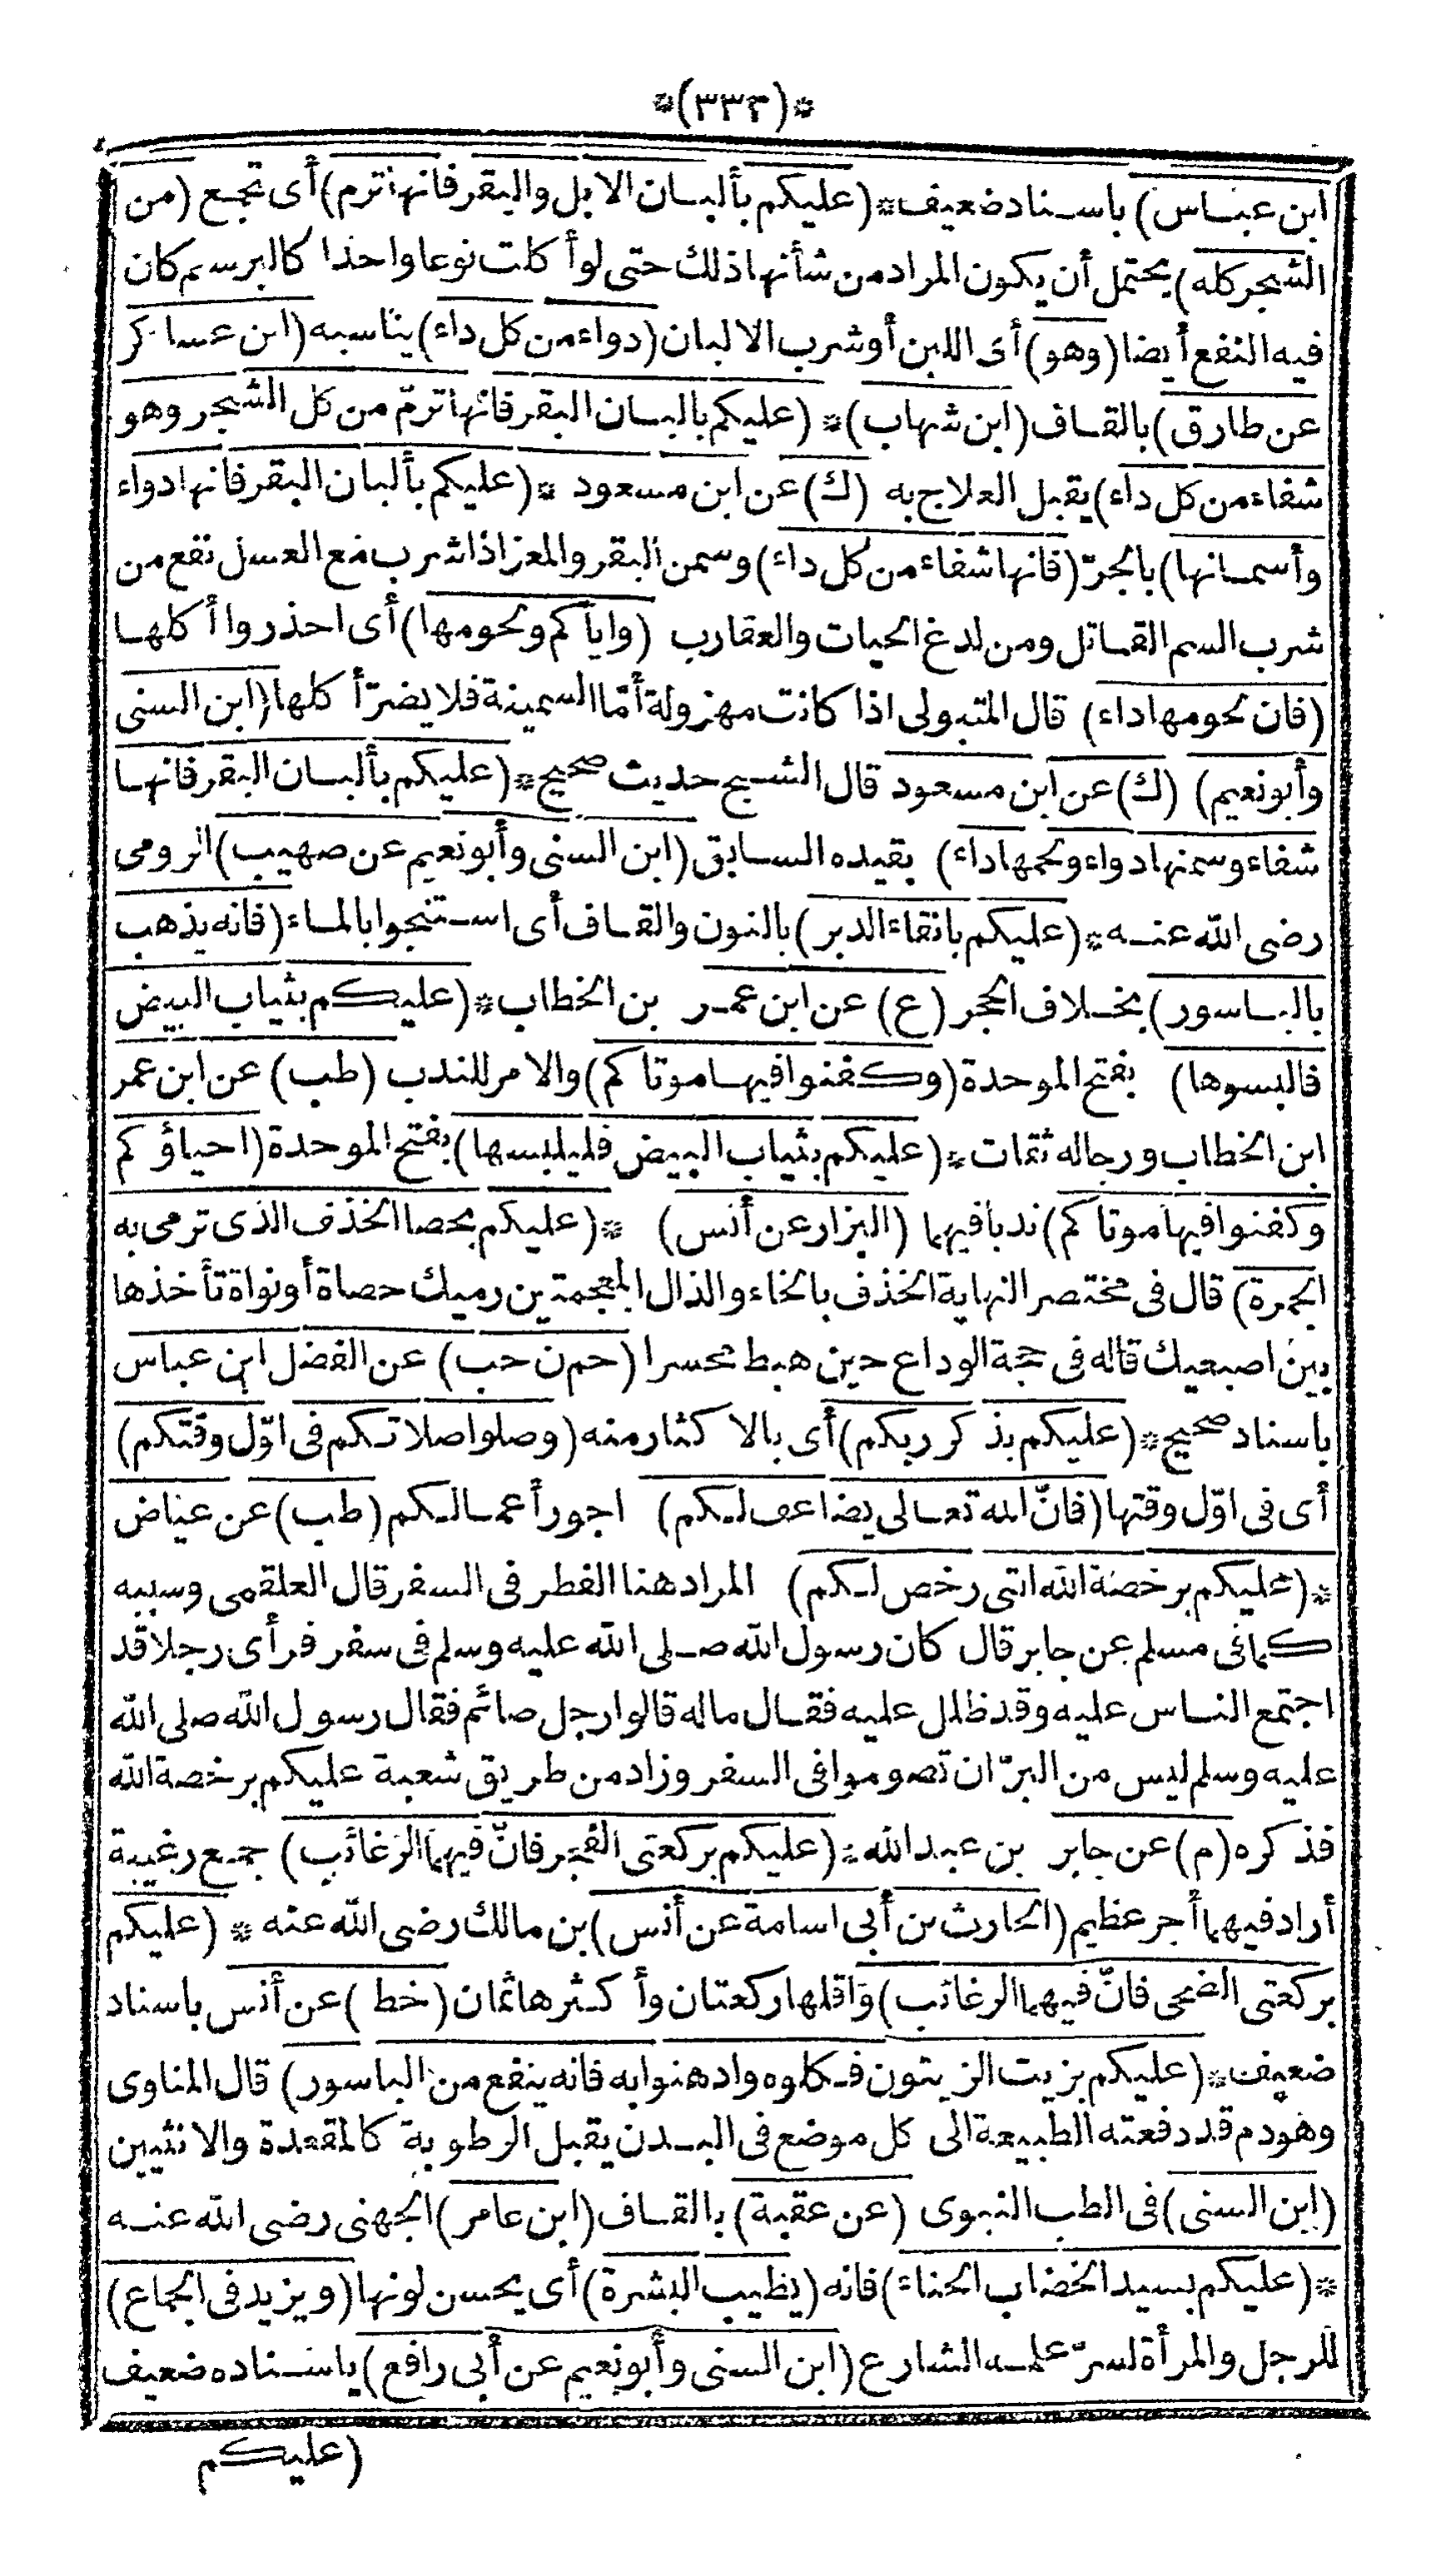 *(٣٣٣)*
ابن عباس) باسناد ضعيف*(عليكم بألبان الابل والبقر فانها ترم) أى تجمع (من
الشجر كله) يحتمل أن يكون المراد من شأنها ذلك حتى لو أكلت نوعا واحدا كالبرسم كان
فيه النفع أيضا (وهو) أى اللبن أو شرب الالبان (دواء من كل داء) يناسبه (ابن عساكر
عن طارق) بالقاف (ابن شهاب)* (عليكم بالبان البقر فانها ترمّ من كل الشجر وهو
شفاء من كل داء) يقبل العلاج به (ك) عن ابن مسعود *(عليكم بألبان البقر فانها دواء
وأسمانها) بالجرّ (فانها شفاء من كل داء) وسمن البقر والمعز اذا شرب مع العسل نفع من
شرب السم القاتل ومن لدغ الحيات والعقارب (واياكم ولحومها) أى احذروا أكلها
(فان لحومها داء) قال المتبولى اذا كانت مهزولة أمّا السمينة فلا يضرّ أكلها (ابن السنى
وأبو نعيم) (ك) عن ابن مسعود قال الشيخ حديث صحيح*(عليكم بألبان البقر فانها
شفاء وسمنها دواء ولحمها داء) بقيده السابق (ابن السنى وأبو نعيم عن صهيب) الرومى
رضى الله عنه*(عليكم بانقاء الدبر) بالنون والقاف أى استنجوا بالماء (فانه يذهب
بالباسور) بخلاف الحجر (ع) عن ابن عمر بن الخطاب*(عليكم بثياب البيض
فالبسوها) بفتح الموحدة (وكفنوا فيها موتاكم) والامر للندب (طب) عن ابن عمر
ابن الخطاب ورجاله ثقات*(عليكم بثياب البيض فليلبسها) بفتح الموحدة (احياؤكم
وكفنوا فيها موتاكم) ندبا فيهما (البزار عن أنس) *(عليكم بحصا الخذف الذى ترمى به
الجمرة) قال فى مختصر النهاية الخذف بالخاء والذال المعجمتين رميك حصاة أو نواة تأخذها
بين اصبعيك قاله فى حجة الوداع حين هبط محسرا (حم ن حب) عن الفضل ابن عباس
باسناد صحيح*(عليكم بذكر ربكم) أى بالاكثار منه (وصلوا صلاتكم فى اوّل وقتكم)
أى فى اوّل وقتها (فانّ الله تعالى يضاعف لكم) اجور أعمالكم (طب) عن عياض
*(عليكم برخصة الله التى رخص لكم) المراد هنا الفطر فى السفر قال العلقمى وسببه
كما فى مسلم عن جابر قال كان رسول الله صلى الله عليه وسلم فى سفر فرأى رجلا قد
اجتمع الناس عليه وقد ظلل عليه فقال ماله قالوا رجل صائم فقال رسول الله صلى الله
عليه وسلم ليس من البرّ ان تصوموا فى السفر وزاد من طريق شعبة عليكم برخصة الله
فذكره (م) عن جابر بن عبد الله*(عليكم بركعتى الفجر فانّ فيهما الرغائب) جمع رغيبة
أراد فيهما أجر عظيم (الحارث بن أبى اسامة عن أنس) بن مالك رضى الله عنه *(عليكم
بركعتى الضحى فانّ فيهما الرغائب) واقلها ركعتان وأكثرها ثمان (خط) عن أنس باسناد
ضعيف*(عليكم بزيت الزيتون فكلوه وادهنوا به فانه ينفع من الباسور) قال المناوى
وهو دم قد دفعته الطبيعة الى كل موضع فى البدن يقبل الرطوبة كالمقعدة والانثيين
(ابن السنى) فى الطب النبوى (عن عقبة) بالقاف (ابن عامر) الجهنى رضى الله عنه
*(عليكم بسيد الخضاب الحناء) فانه (يطيب البشرة) أى يحسن لونها (ويزيد فى الجماع)
للرجل والمرأة لسرّ علمه الشارع (ابن السنى وأبو نعيم عن أبى رافع) باسناده ضعيف
(عليكم